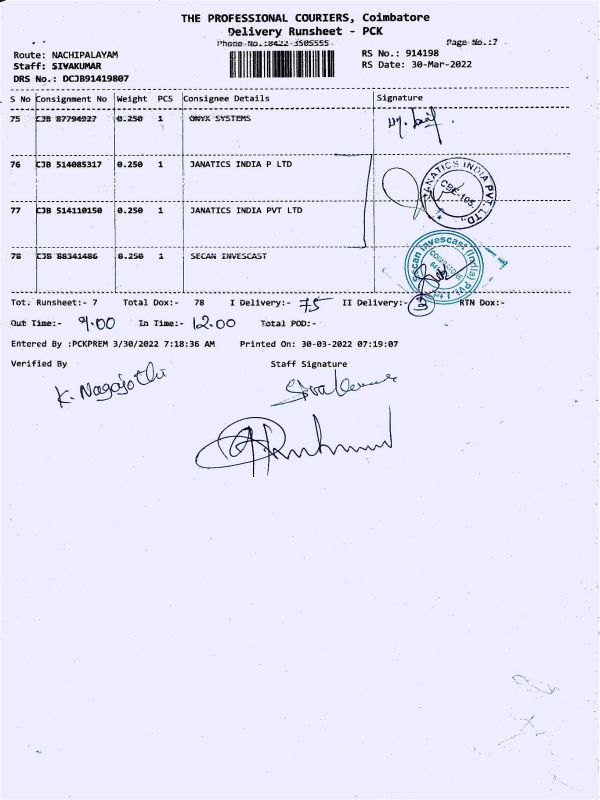 THE PROFESSIONAL COURIERS, Coimbatore
Delivery Runsheet - PCK
Phone No.:0422-3505555
Page No.:7
Route: NACHIPALAYAM
RS No.: 914198
Staff: SIVAKUMAR
RS Date: 30-Mar-2022
DRS No.: DCJB91419807
S No Consignment No Weight PCS Consignee Details Signature
75 CJB 87794927 0.250 1 ONYX SYSTEMS
76 CJB 514085317 0.250 1 JANATICS INDIA P LTD
JANATICS INDIA PVT. LTD.,
CBE-105.
77 CJB 514110150 0.250 1 JANATICS INDIA PVT LTD
78 CJB 88341486 0.250 1 SECAN INVESCAST
Secan Invescast (India) Pvt. Ltd
Tot. Runsheet:- 7 Total Dox:- 78 I Delivery:- 75 II Delivery:- RTN Dox:-
Out Time:- 9.00 In Time:- 12.00 Total POD:-
Entered By :PCKPREM 3/30/2022 7:18:36 AM Printed On: 30-03-2022 07:19:07
Verified By Staff Signature
K. Nagajothi
Sivakumar